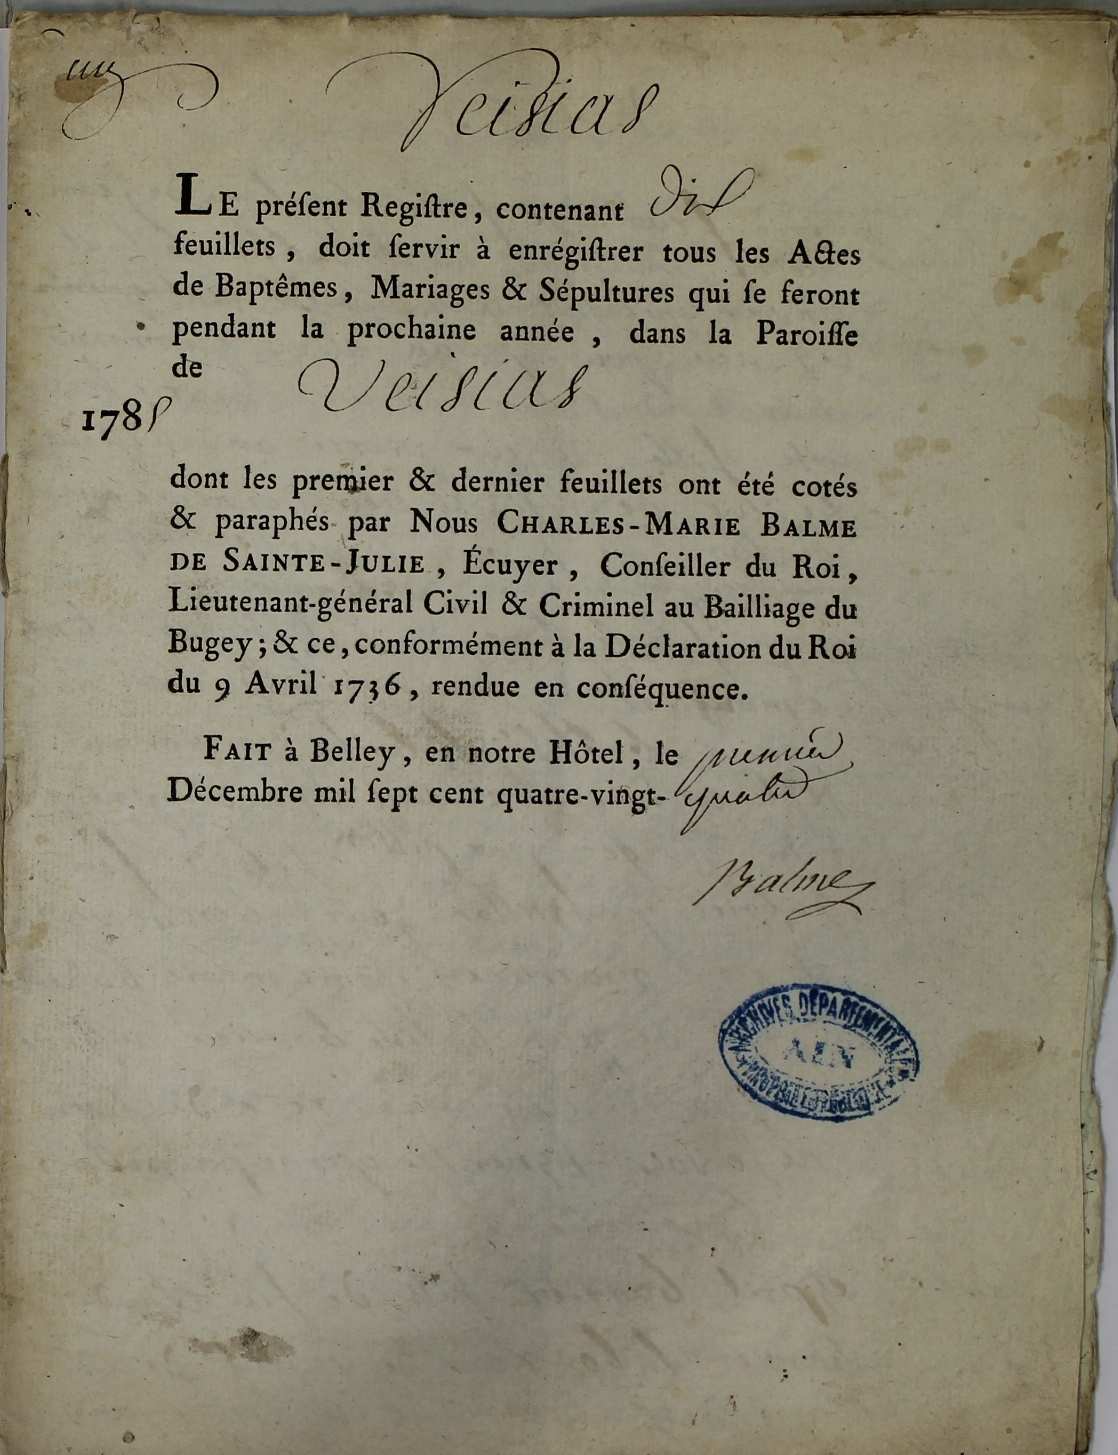 un
Veisias
LE préſent Regiſtre, contenant dix
feuillets, doit ſervir à enrégiſtrer tous les Actes
de Baptêmes, Mariages & Sépultures qui ſe feront
pendant la prochaine année, dans la Paroiſſe
de Veisias
1785
dont les premier & dernier feuillets ont été cotés
& paraphés par Nous CHARLES-MARIE BALME
DE SAINTE-JULIE, Écuyer, Conſeiller du Roi,
Lieutenant-général Civil & Criminel au Bailliage du
Bugey; & ce, conformément à la Déclaration du Roi
du 9 Avril 1736, rendue en conſéquence.
FAIT à Belley, en notre Hôtel, le premier
Décembre mil ſept cent quatre-vingt-quatre
Balme
ARCHIVES DÉPARTEMENTALES
AIN
PROPRIÉTÉ PUBLIQUE